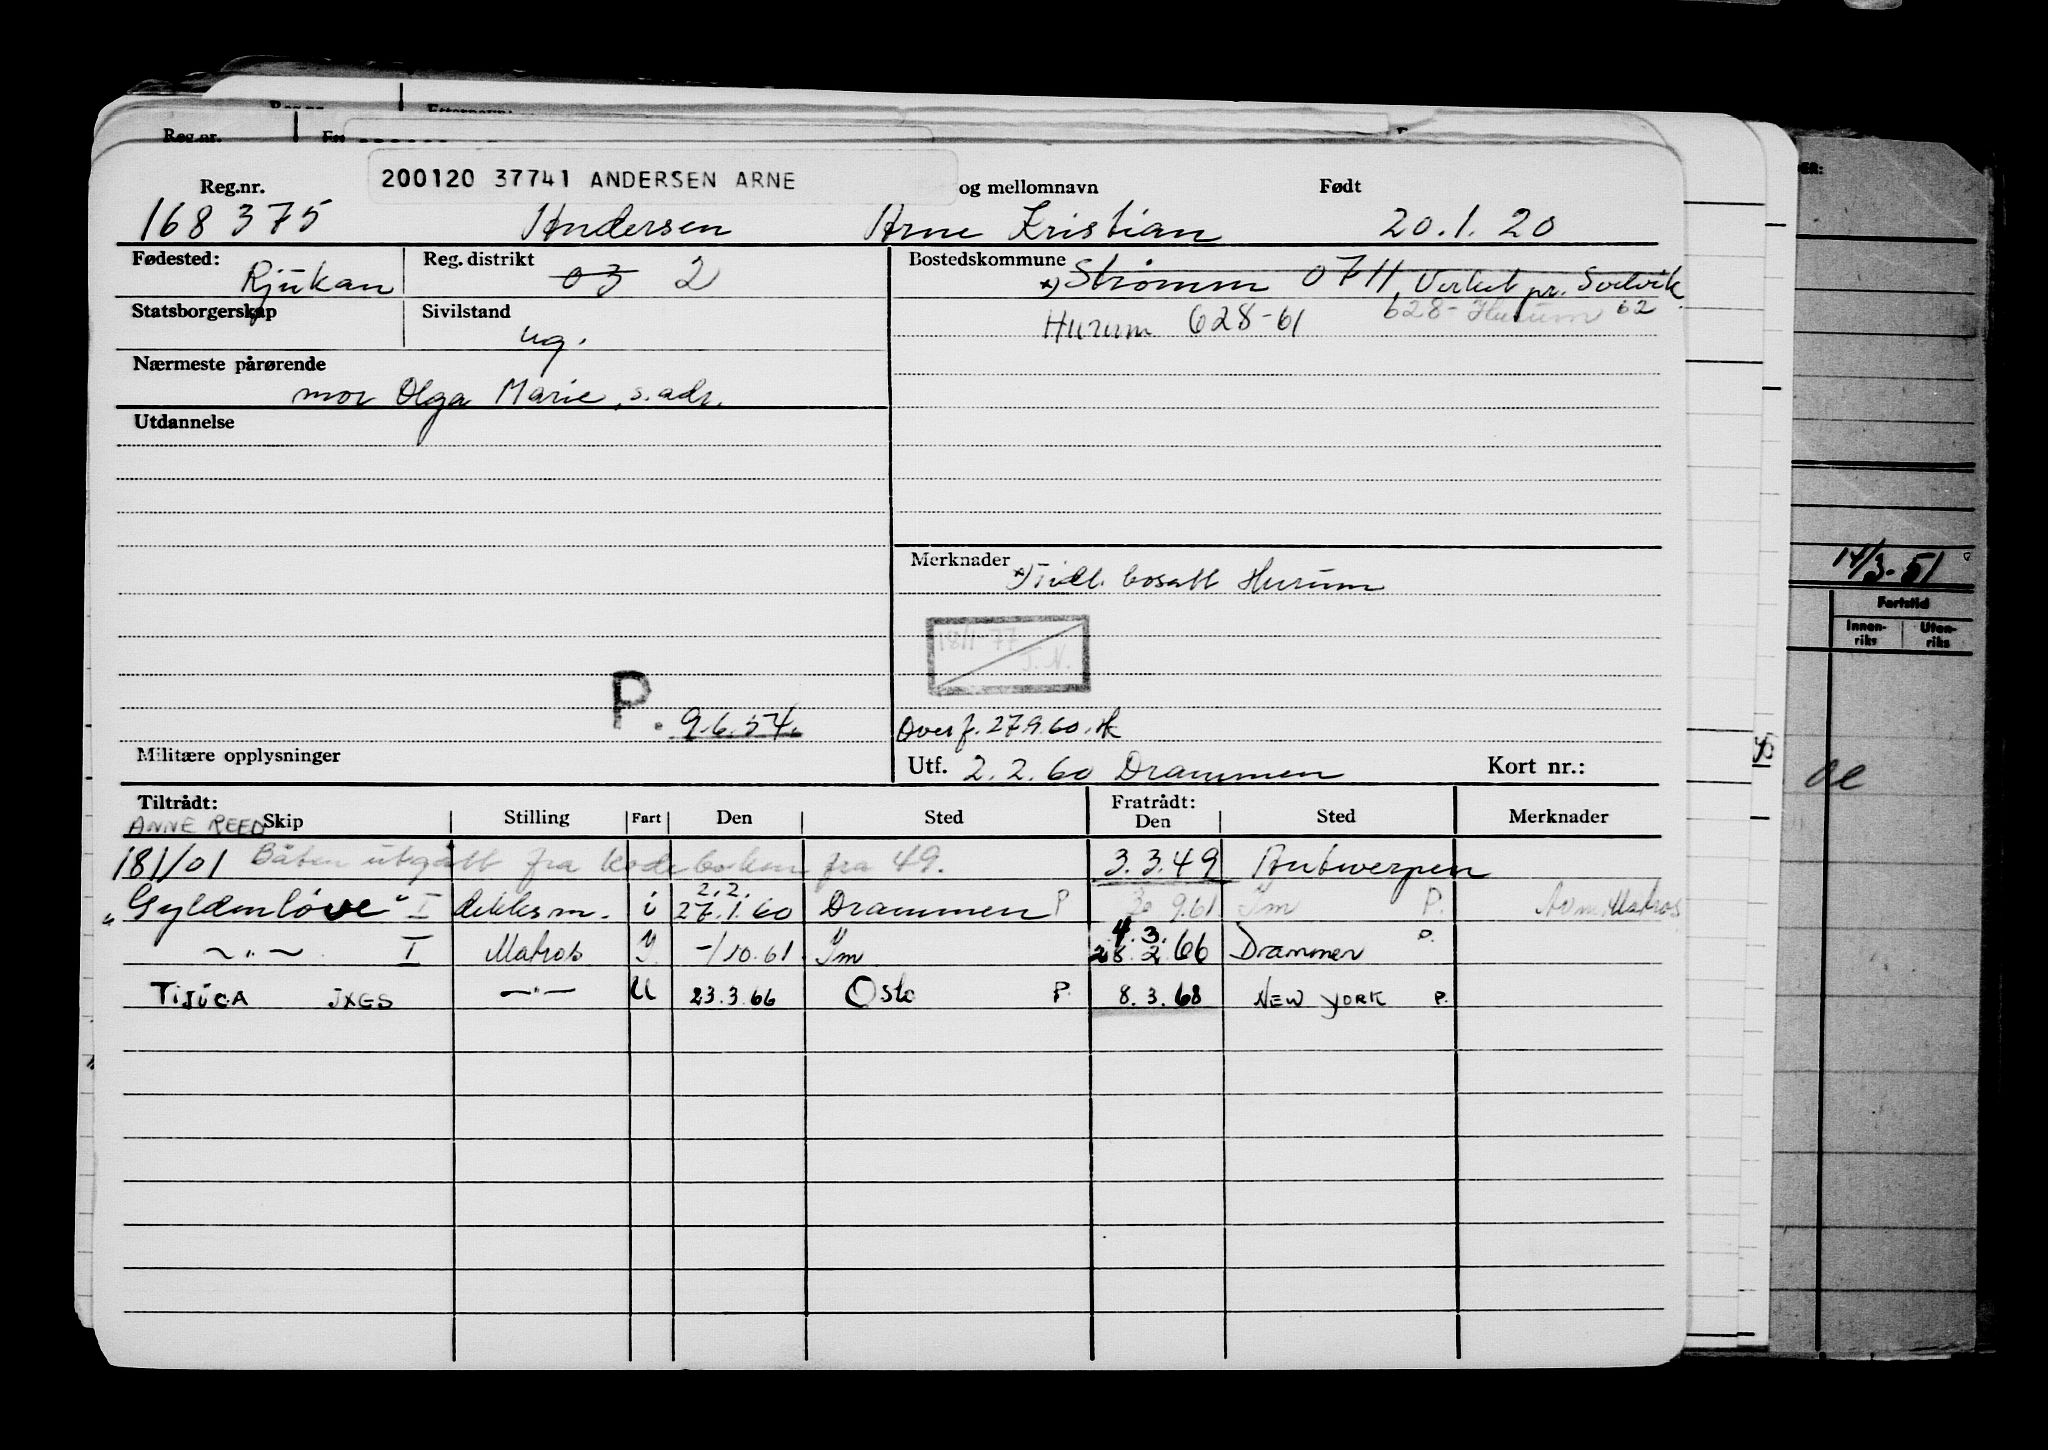 Reg.nr.
200120 37741 ANDERSEN ARNE
Reg.nr. og mellomnavn Født
168 375 Andersen Arne Kristian 20.1.20
Fødested: Rjukan Reg. distrikt 03 2
Bostedskommune x) Strømm 0711 Verket pr. Svelvik
Statsborgerskap Sivilstand ug.
Hurum 628-61 628-Hurum 62
Nærmeste pårørende
mor Olga Marie, s. adr.
Utdannelse
Merknader x) Tidl. bosatt Hurum
18/1 77
J.N.
P. 9.6.54.
Overf. 27.9.60.
Militære opplysninger
Utf. 2.2.60 Drammen Kort nr.:
Tiltrådt: Fratrådt:
ANNE REED Skip Stilling Fart Den Sted Den Sted Merknader
181/01 Båten utgått fra kodeboken fra 49. 3.3.49 Antwerpen
2.2.
"Gyldenløve" I dekksm. i 27.1.60 Drammen P 9.61 Ym P. Matros
4.3.
-"- I Matros Y. -/10.61 Ym 28.2.66 Drammen P.
TIJUCA JXGS -"- U 23.3.66 Oslo P. 8.3.68 NEW YORK P.
14/3-51
Fartstid
Innen-
riks
Uten-
riks